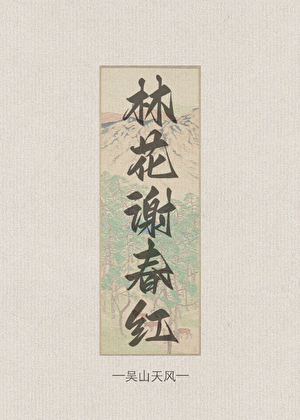 林花谢春红
—吴山天风—